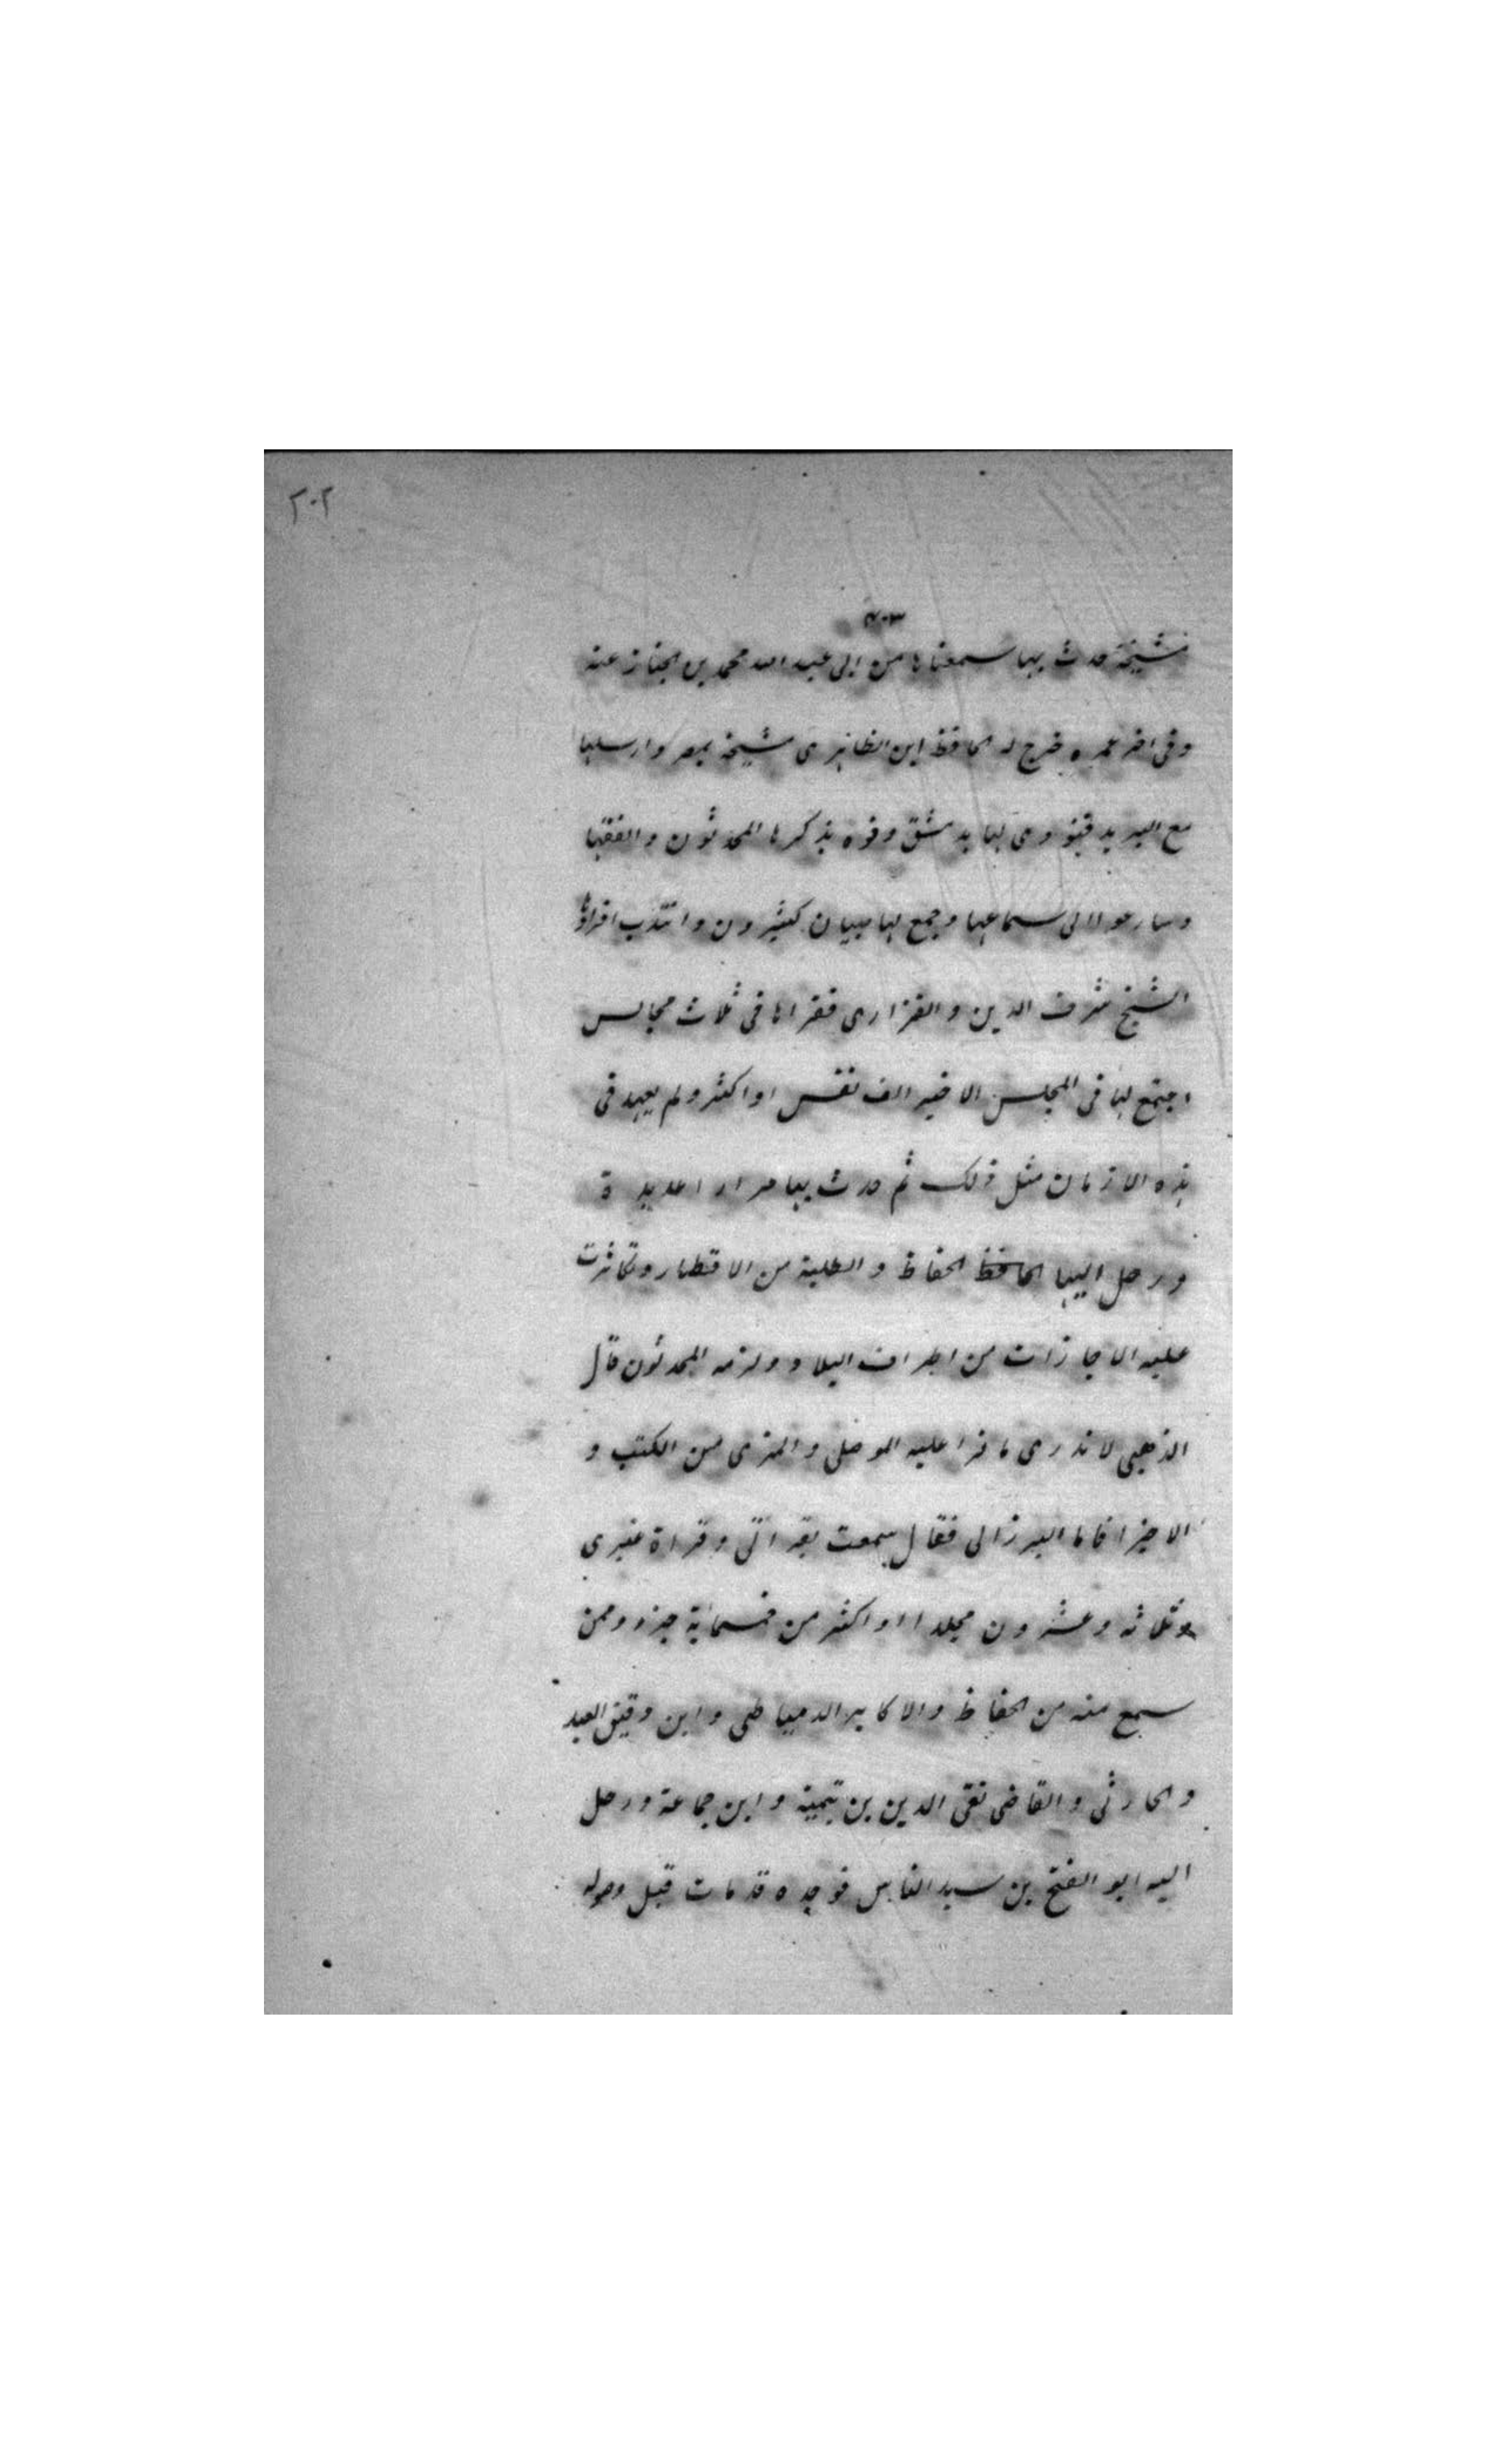 ٢٠٢
٤٠٣
مشيخة حدث بها سمعناها من ابى عبد الله محمد بن الخباز عنه
وفى اخر عمره خرج له الحافظ ابن الظاهرى مشيخة بمصر وارسلها
مع البريد فنودى لها بدمشق ونوه بذكرها المحدثون والفقها
وسارعوا الى سماعها وجمع لها صبيان كثيرون وانتدب لقراءتها
الشيخ شرف الدين والفزارى فقراها فى ثلاث مجالس
اجتمع لها فى المجلس الاخير الف نفس او اكثر ولم يعهد فى
هذه الازمان مثل ذلك ثم حدث بها مرارا عديدة
ورحل اليها الحافظ الحفاظ والطلبة من الاقطار وتكاثرت
عليه الاجازات من اطراف البلاد ولزمه المحدثون قال
الذهبى لا ندرى ما قرا عليه الموصلى والمزى من الكتب و
الاجزا فاما البرزالى فقال سمعت بقراتى وقراة غيرى
ثلاثه وعشرون مجلدا او اكثر من خمسماية جزء وممن
سمع منه من الحفاظ والاكابر الدمياطى وابن دقيق العيد
والحارثى والقاضى تقى الدين بن تيمية وابن جماعة ورحل
اليه ابو الفتح بن سيد الناس فوجده قد مات قبل وصوله